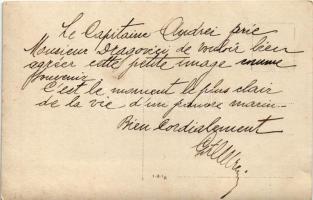 Le Capitaine Andréi prie
Monsieur Dragovici de vouloir bien
agréer cette petite image comme
souvenir
C'est le moment le plus clair
de la vie d'un pauvre marin -
Bien Cordialement